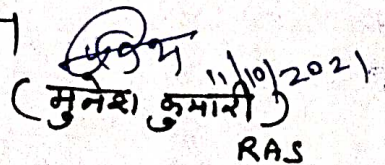 11/10/2021
(मुनेश कुमारी)
RAS